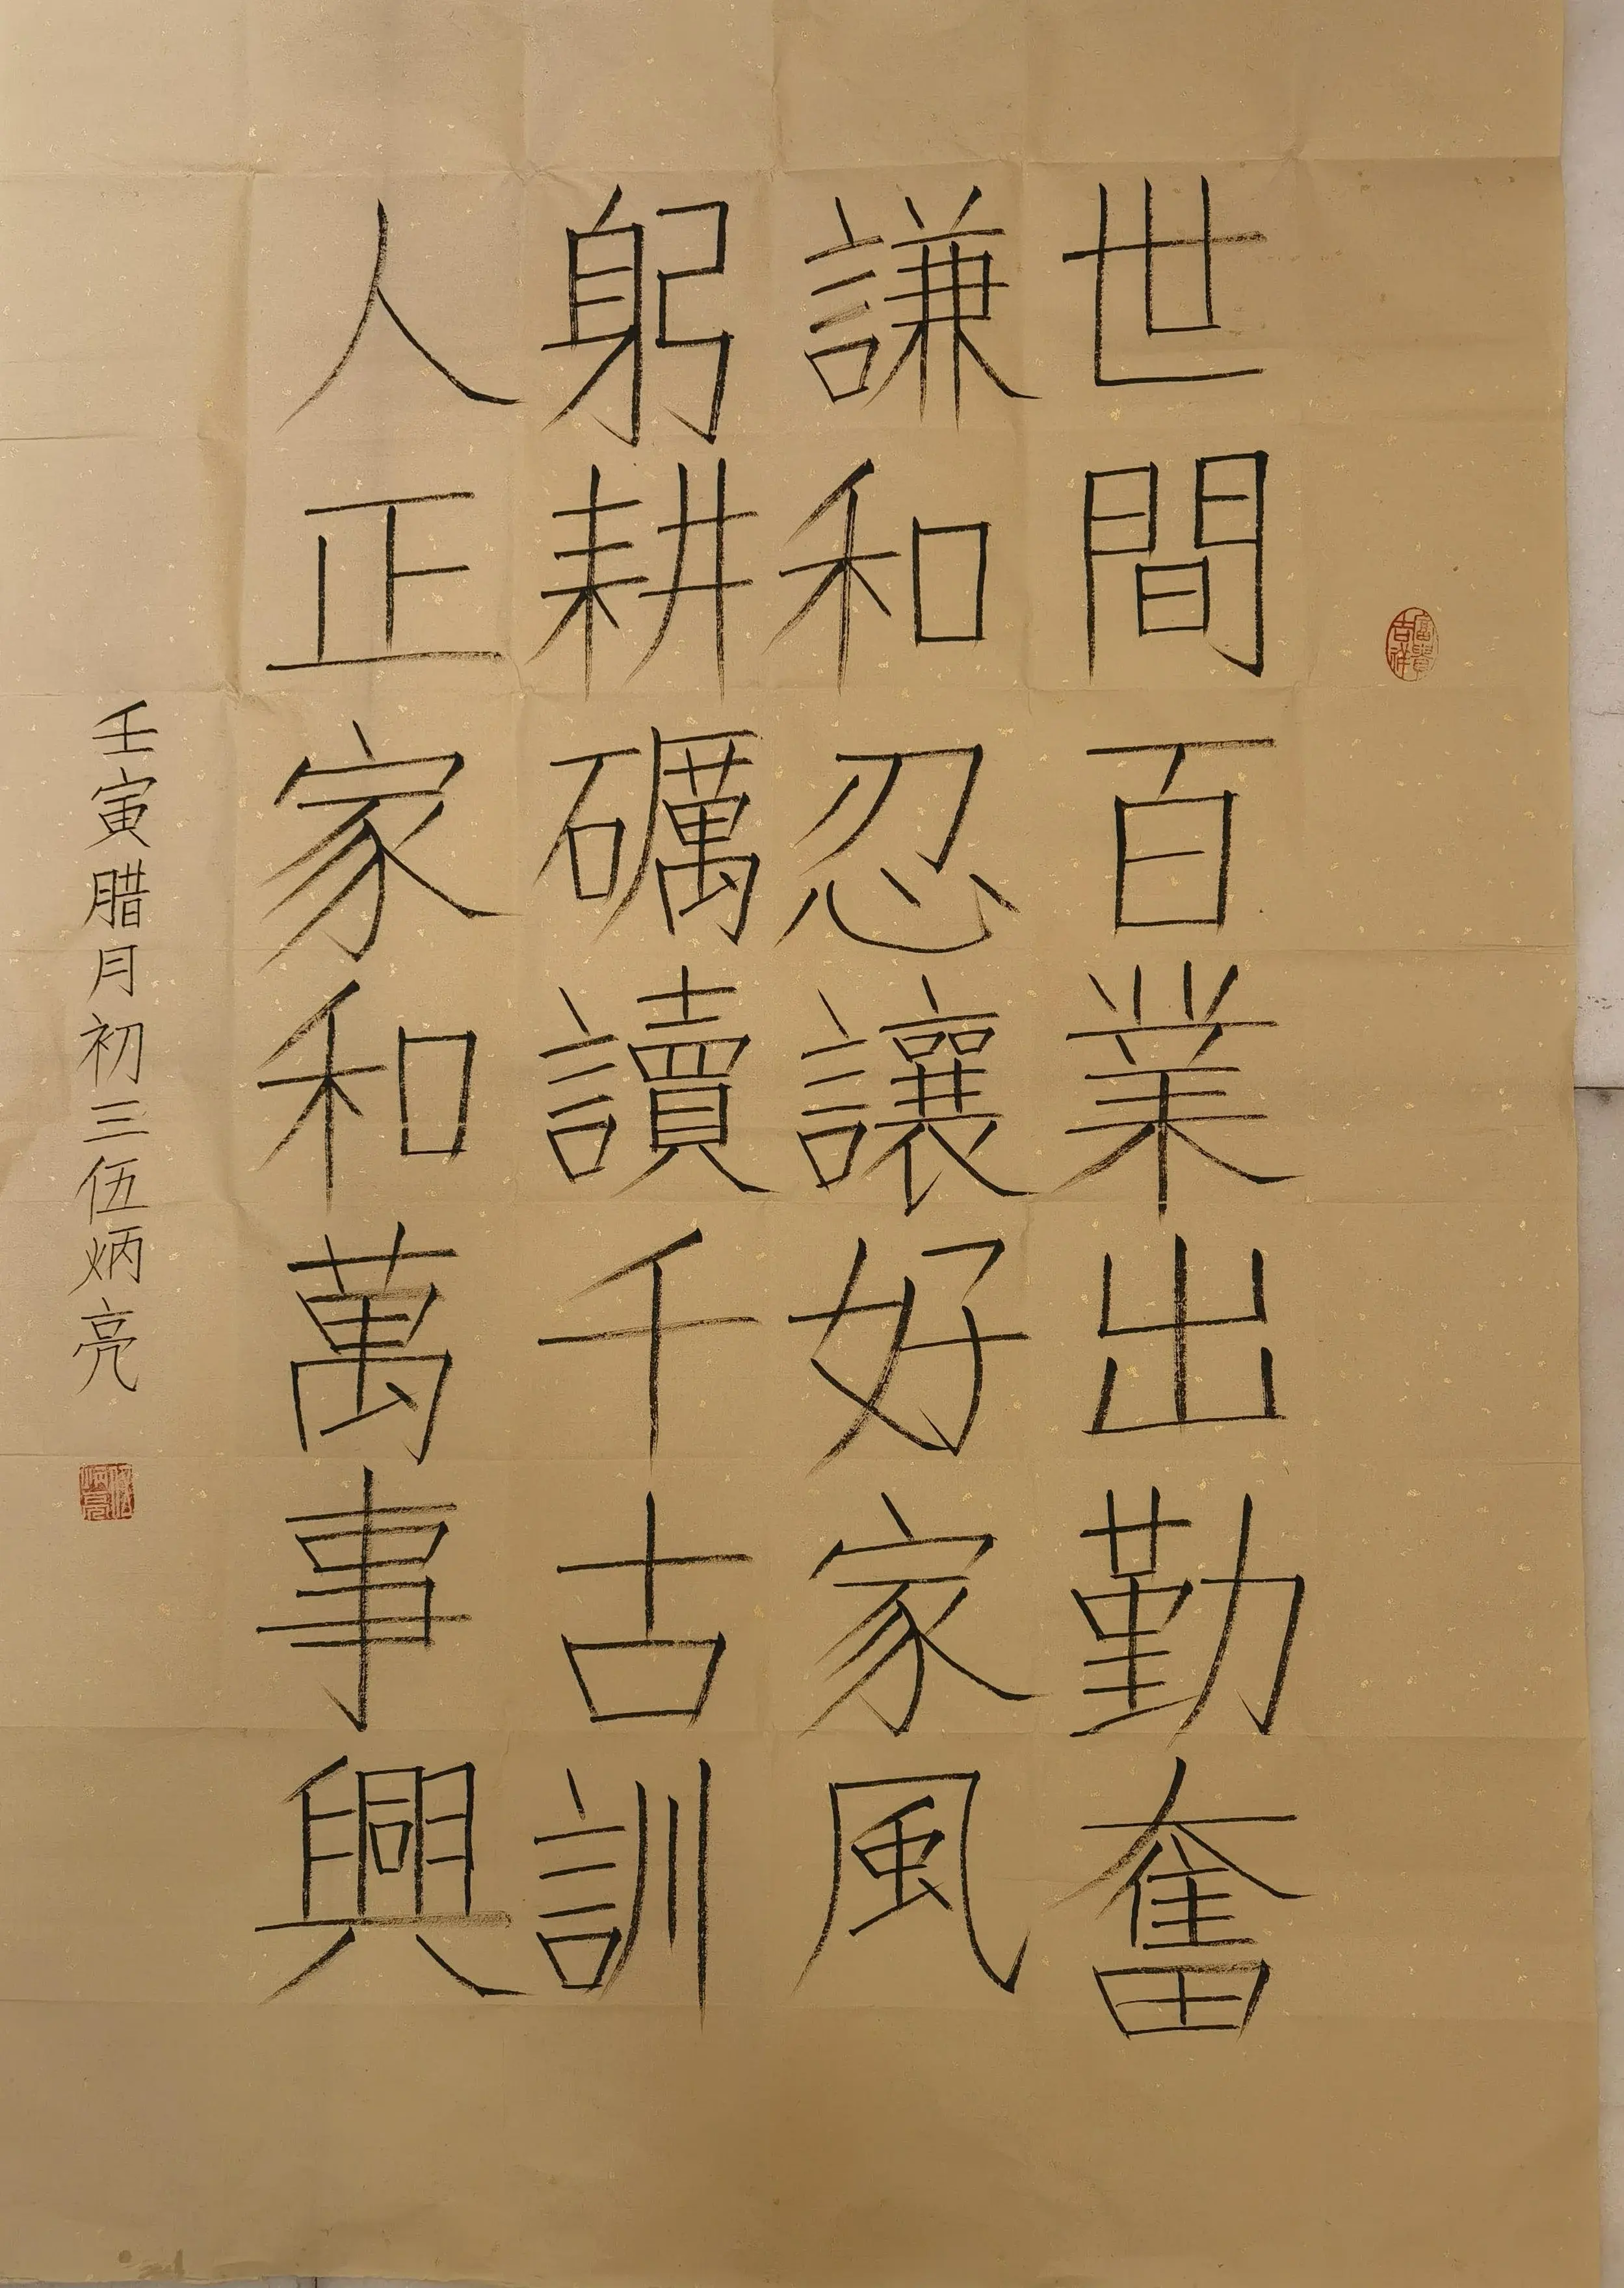 世間百業出勤奮
謙和忍讓好家風
躬耕礪讀千古訓
人正家和萬事興
壬寅腊月初三伍炳亮
富貴吉祥